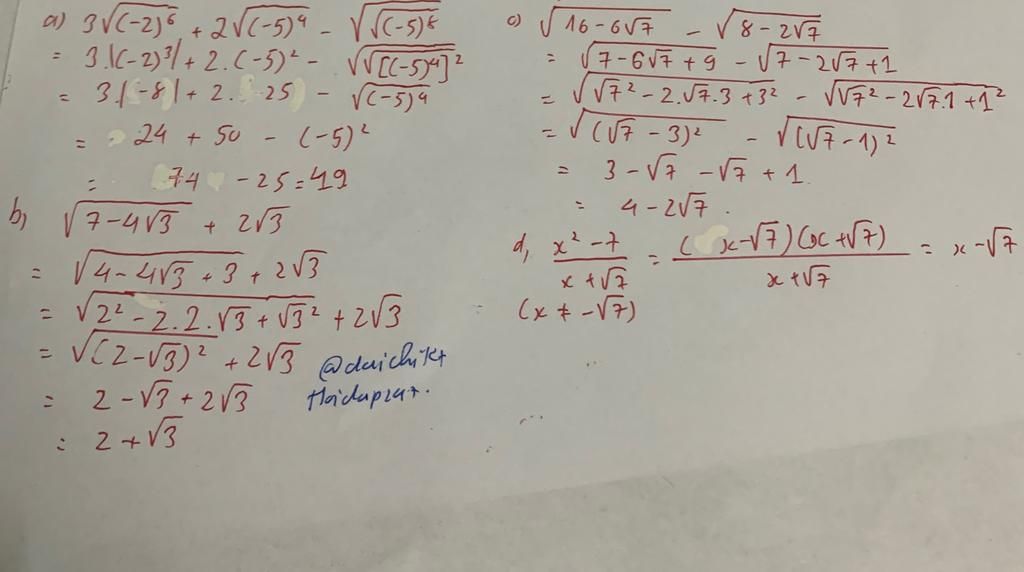 a) 3√(-2)⁶ + 2√(-5)⁴ - √√(-5)⁸
= 3.|(-2)³| + 2.(-5)² - √√[(-5)⁴]²
= 3.|-8| + 2. 25 - √(-5)⁴
= 24 + 50 - (-5)²
= 74 - 25 = 49
b, √7-4√3 + 2√3
= √4-4√3+3 + 2√3
= √2²-2.2.√3+√3² + 2√3
= √(2-√3)² + 2√3
= 2-√3+2√3
= 2+√3
@daichikt
c) √16-6√7 - √8-2√7
= √7-6√7+9 - √7-2√7+1
= √√7²-2.√7.3+3² - √√7²-2√7.1+1²
= √(√7-3)² - √(√7-1)²
= 3-√7-√7+1
= 4-2√7.
d, x²-7 / x+√7 = (x-√7)(x+√7) / x+√7 = x-√7
(x ≠ -√7)